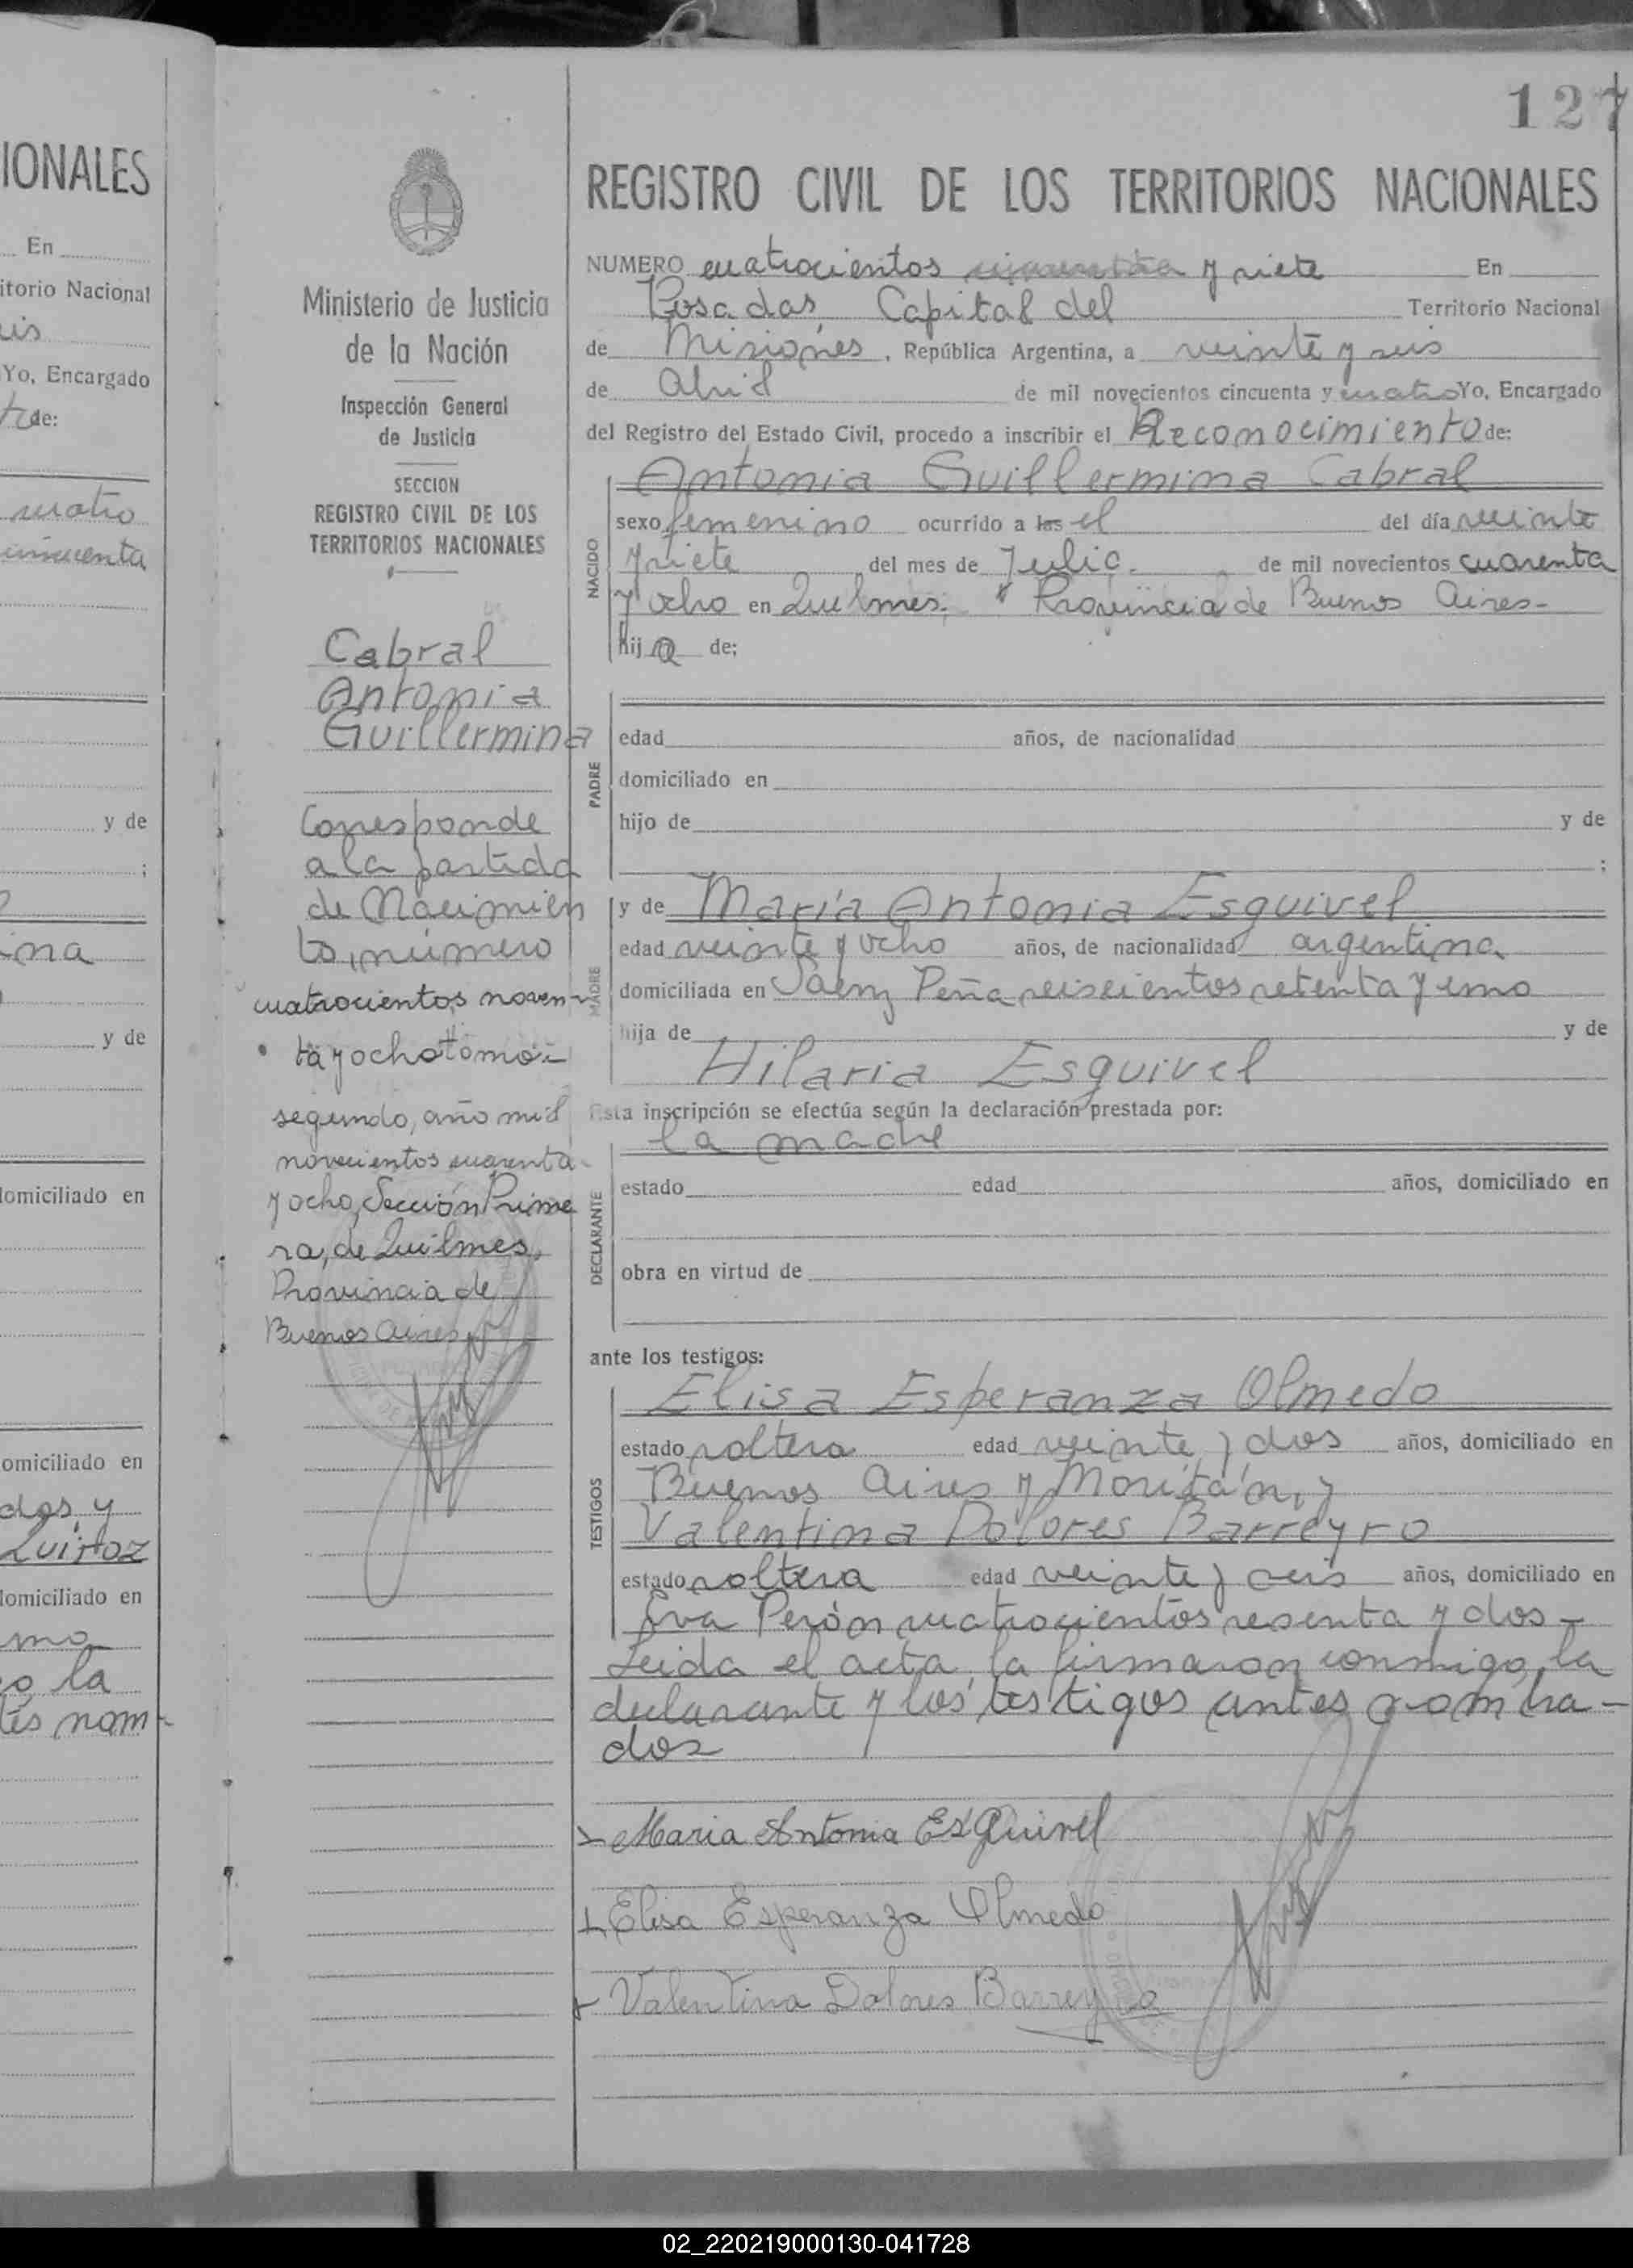 IONALES
En
itorio Nacional
is
Yo, Encargado
de:
cuatro
cincuenta
y de
;
ina
y de
domiciliado en
omiciliado en
dos, y
Quiroz
domiciliado en
la
tes nom-
Ministerio de Justicia
de la Nación
Inspección General
de Justicia
SECCION
REGISTRO CIVIL DE LOS
TERRITORIOS NACIONALES
Cabral
Antonia
Guillermina
Corresponde
a la partida
de Nacimien
to, número
cuatrocientos noven-
ta y ocho tomo
segundo, año mil
novecientos cuarenta
y ocho, Sección Prime
ra, de Quilmes,
Provincia de
Buenos Aires
127
REGISTRO CIVIL DE LOS TERRITORIOS NACIONALES
NUMERO cuatrocientos y siete En
Posadas, Capital del Territorio Nacional
de Misiones, República Argentina, a veinte y seis
de Abril de mil novecientos cincuenta y cuatro Yo, Encargado
del Registro del Estado Civil, procedo a inscribir el Reconocimiento de:
Antonia Guillermina Cabral
NACIDO
sexo femenino ocurrido a las el del día veinte
y siete del mes de Julio. de mil novecientos cuarenta
y ocho en Quilmes. Provincia de Buenos Aires-
hija de;
PADRE
edad años, de nacionalidad
domiciliado en
hijo de y de
;
MADRE
y de María Antonia Esquivel
edad veinte y ocho años, de nacionalidad argentina.
domiciliada en Saenz Peña seiscientos setenta y uno
hija de y de
Hilaria Esquivel
Esta inscripción se efectúa según la declaración prestada por:
la madre
DECLARANTE
estado edad años, domiciliado en
obra en virtud de
ante los testigos:
TESTIGOS
Elisa Esperanza Olmedo
estado soltera edad veinte y dos años, domiciliado en
Buenos Aires y Moritán, y
Valentina Dolores Barreyro
estado soltera edad veinte y seis años, domiciliado en
Eva Perón cuatrocientos sesenta y dos-
Leida el acta, la firmaron conmigo, la
declarante y los testigos antes nombra-
dos
Maria Antonia Esquivel
Elisa Esperanza Olmedo
Valentina Dolores Barreyro
02_220219000130-041728